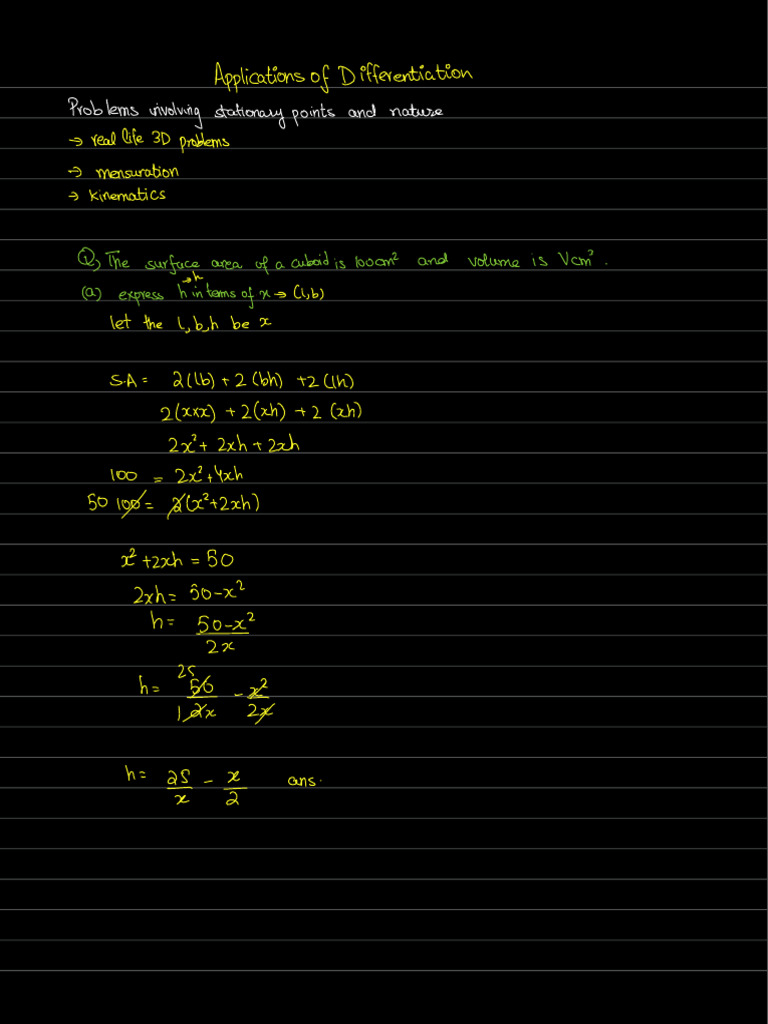 Applications of Differentiation
Problems involving stationary points and nature
→ real life 3D problems
→ mensuration
→ kinematics
Q, The surface area of a cuboid is 100cm² and volume is Vcm³.
→ h
(a) express h in terms of x → (l,b)
let the l,b,h be x
S.A = 2(lb) + 2(bh) +2(lh)
2(x×x) + 2(xh) + 2 (xh)
2x² + 2xh + 2xh
100 = 2x²+4xh
50 100 = 2(x²+2xh)
x² +2xh = 50
2xh = 50-x²
h = 50-x²
2x
25
h = 50 - x²
1 2x 2x
h = 25 - x ans.
x 2